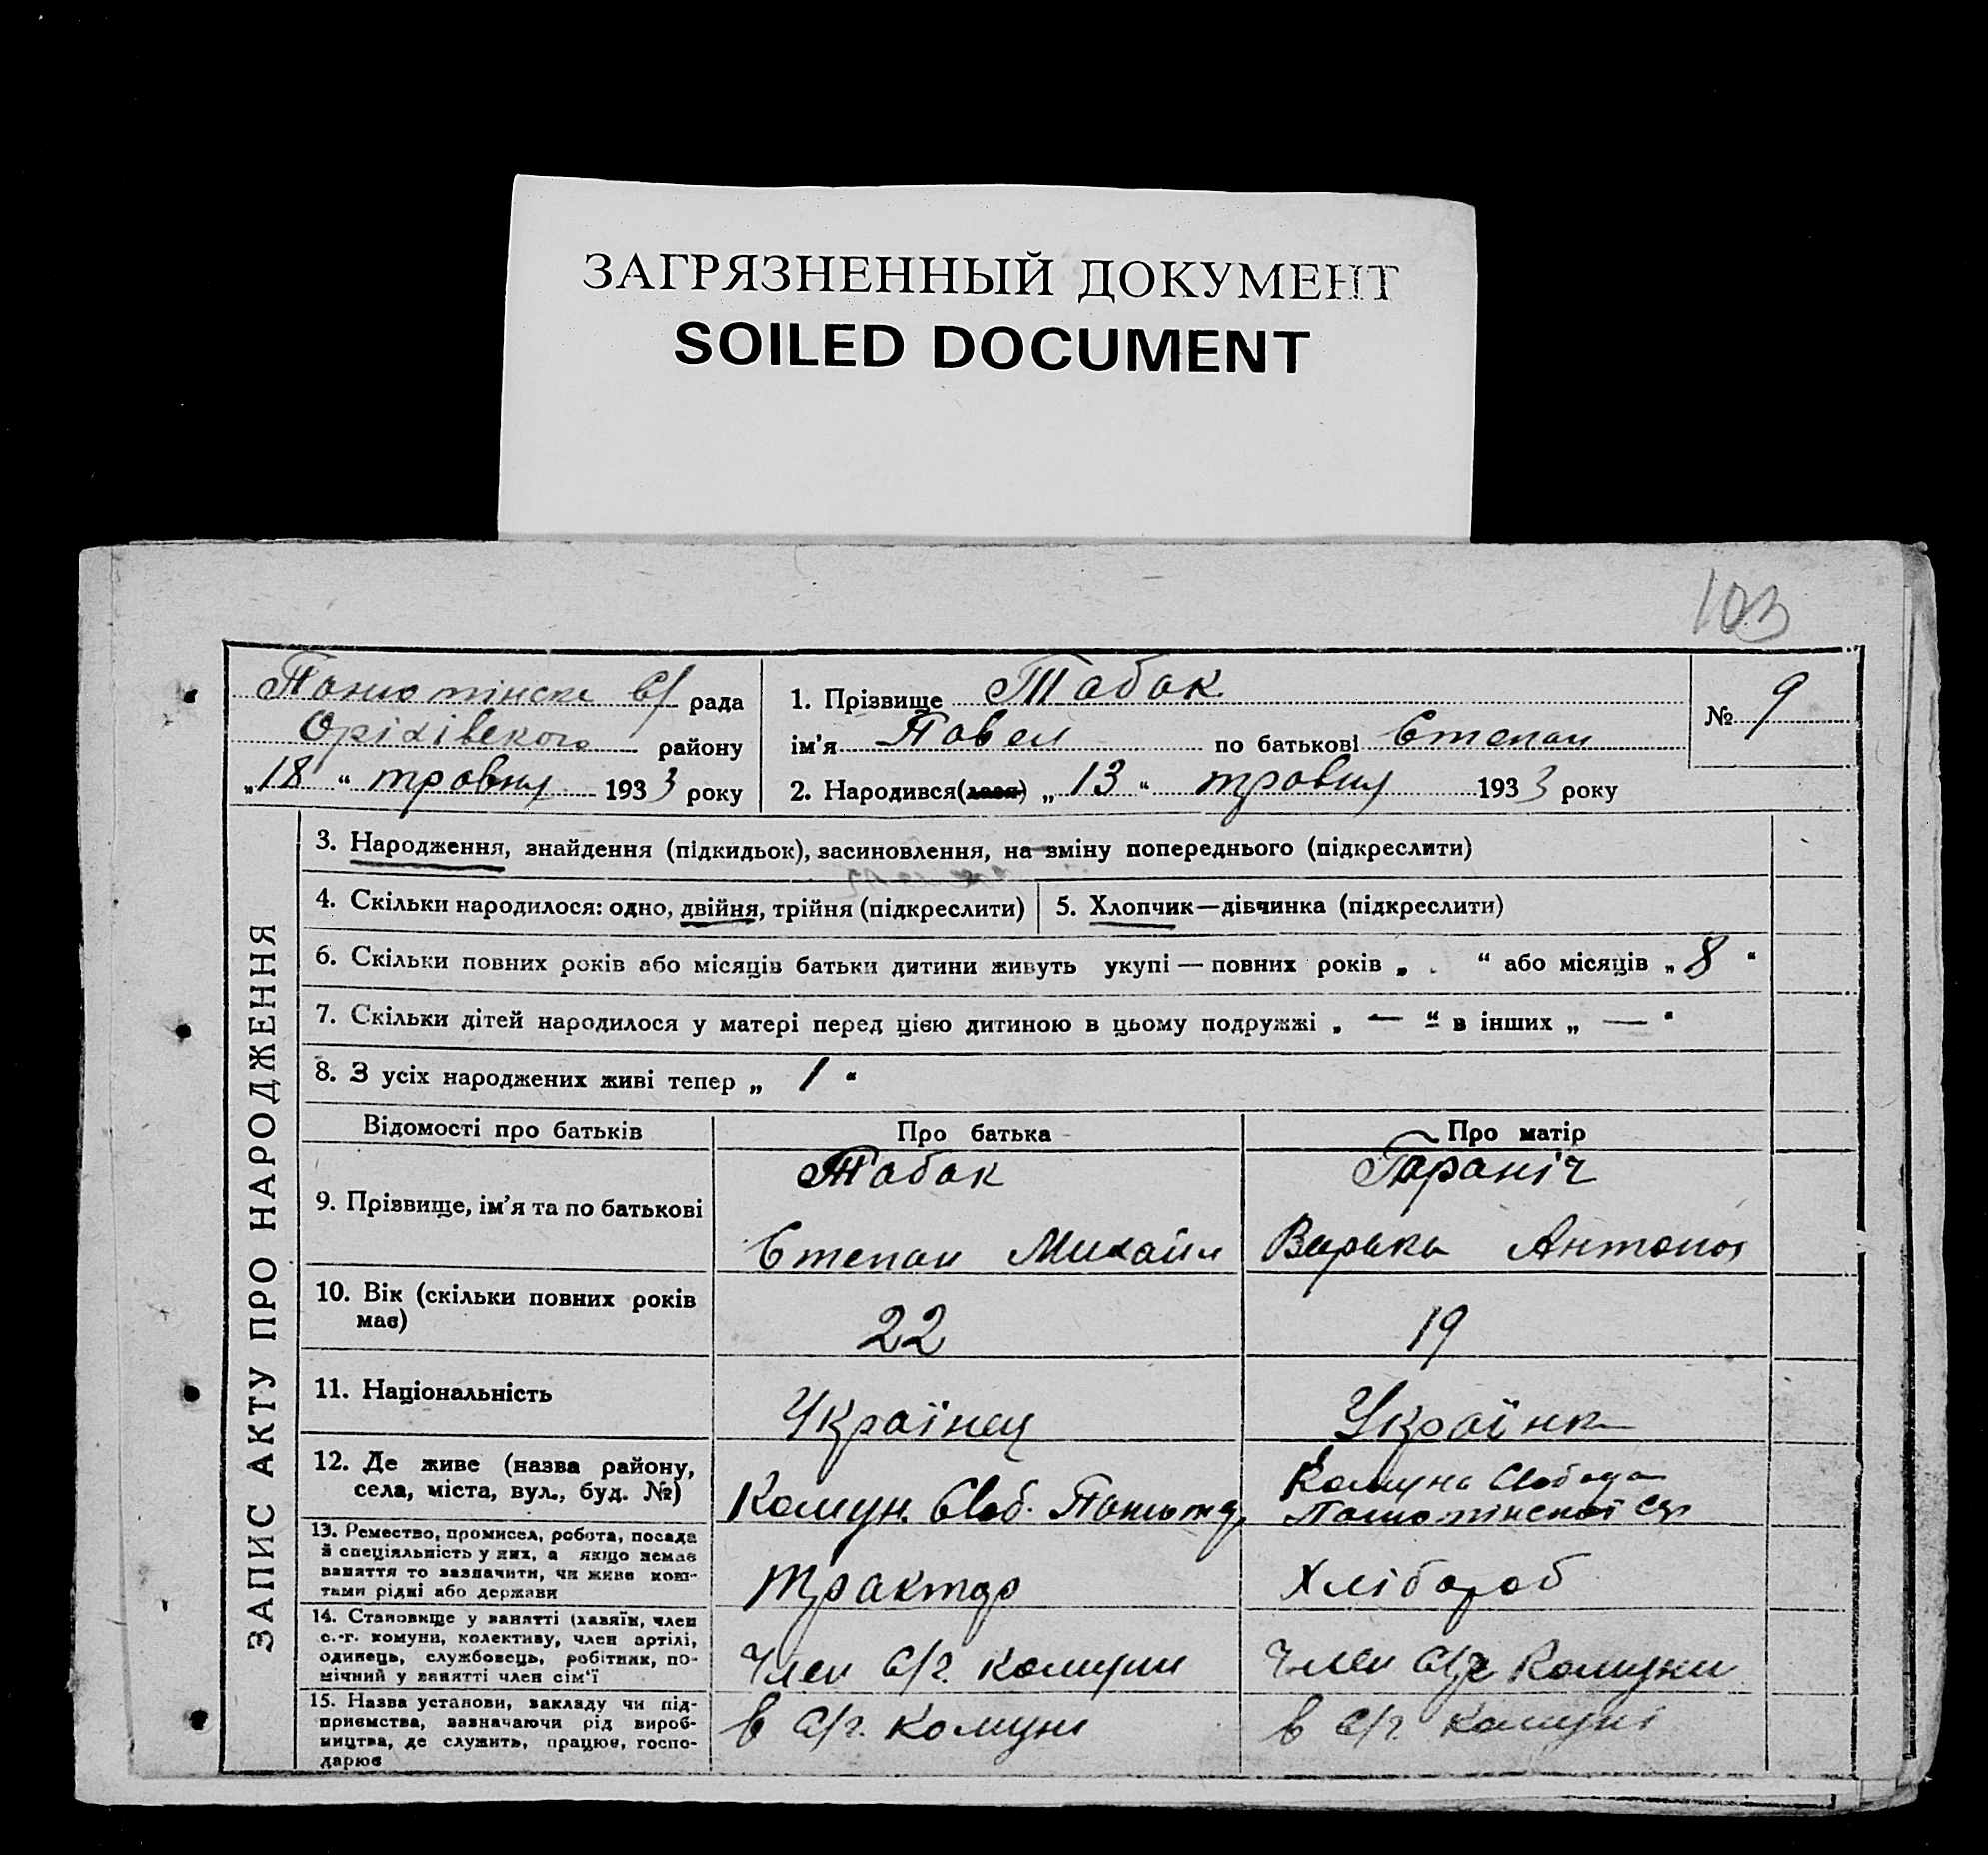 ЗАГРЯЗНЕННЫЙ ДОКУМЕНТ
SOILED DOCUMENT
103
с/ рада
Оріхівського району
„18“ травня 1933 року
1. Прізвище Табак
ім’я Павел по батькові Степан
№ 9
2. Народився(лася) „13“ травня 1933 року
ЗАПИС АКТУ ПРО НАРОДЖЕННЯ
3. Народження, знайдення (підкидьок), засиновлення, на зміну попереднього (підкреслити)
4. Скільки народилося: одно, двійня, трійня (підкреслити)
5. Хлопчик—дівчинка (підкреслити)
6. Скільки повних років або місяців батьки дитини живуть укупі — повних років „ “ або місяців „8“
7. Скільки дітей народилося у матері перед цією дитиною в цьому подружжі „ — “ в інших „ — “
8. З усіх народжених живі тепер „ 1 “
Відомості про батьків
Про батька
Про матір
9. Прізвище, ім’я та по батькові
Табак
Степан Михайл
Гараніч
Варька Антонов
10. Вік (скільки повних років має)
22
19
11. Національність
Українец
Українк
12. Де живе (назва району,
села, міста, вул., буд. №)
Комун. Своб.
Комуна Свобода
13. Ремество, промисел, робота, посада
й спеціяльність у них, а якщо немає
заняття то зазначити, чи живе кош-
тами рідні або держави
трактор
Хлібороб
14. Становище у занятті (хазяїн, член
с.-г. комуни, колективу, член артілі,
одинець, службовець, робітник, по-
мічний у занятті член сім’ї
Член с/г. комуни
Член с/г комуни
15. Назва установи, закладу чи під-
приємства, зазначаючи рід вироб-
ництва, де служить, працює, госпо-
дарює
в с/г. комуні
в с/г. комуні